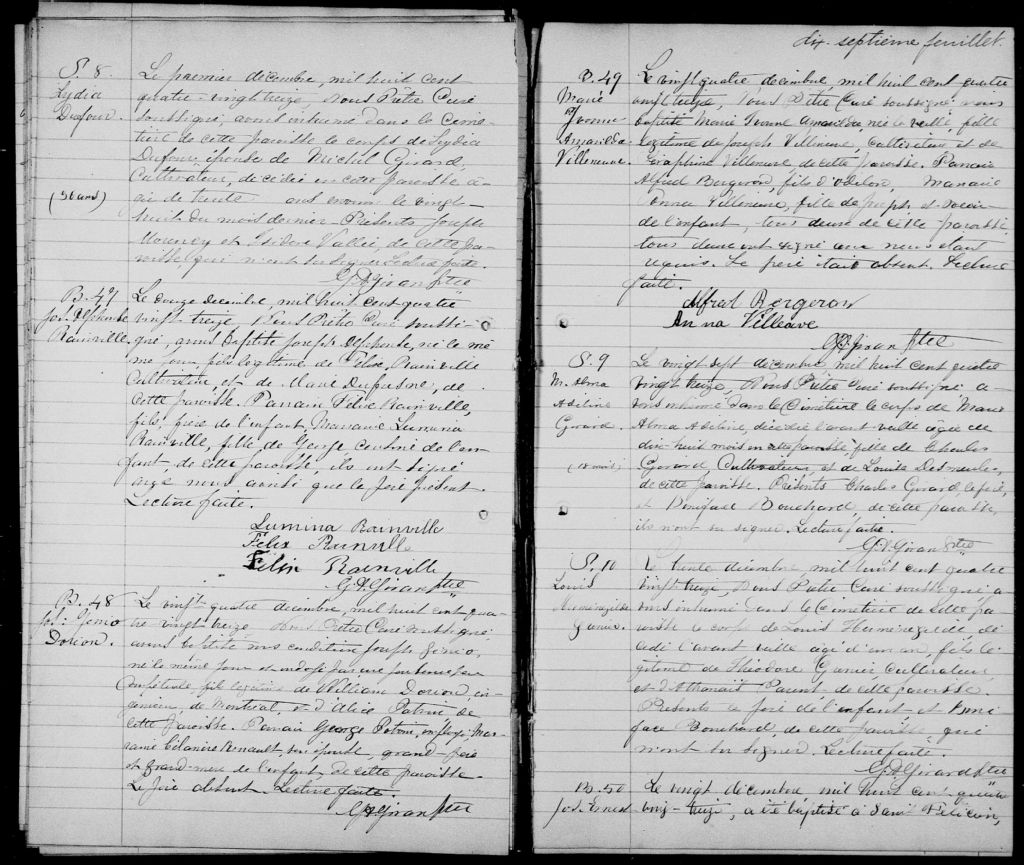 S. 8.
Lydia
Dufour.
(30 ans)
Le premier décembre, mil huit cent
quatre-vingt treize, Nous Prêtre Curé
soussigné, avons inhumé dans le Cime-
tière de cette paroisse le corps de Lydia
Dufour, épouse de Michel Girard,
Cultivateur, décédée en cette paroisse â-
gée de trente ans environ le vingt
huit du mois dernier. Présents Joseph
et Isidore Vallée, de cette pa-
roisse, qui n'ont su signer. Lecture faite.
G. D. Girard Ptre
B. 47
Jos. Alphonse
Rainville.
Le douze décembre, mil huit cent quatre
vingt-treize Nous Prêtre Curé soussi-
gné, avons baptisé Joseph Alphonse, né le mê
me jour fils légitime de Félix Rainville
Cultivateur et de Marie Dufresne, de
cette paroisse. Parrain Félix Rainville,
fils, frère de l'enfant, Marraine Lumina
Rainville, fille de George cousine de l'en-
fant, de cette paroisse, ils ont signé
avec nous ainsi que le père présent.
Lecture faite.
Lumina Rainville
Félix Rainville
Félix Rainville
G. D. Girard Ptre
B. 48
Jos:
Dorion.
Le vingt quatre décembre, mil huit cent qua-
tre vingt-treize Nous Prêtre Curé soussigné,
avons baptisé sous condition Joseph
né le même jour et ondoyé par une personne
compétente, fils légitime de William Dorion, in-
génieur, de Montréal, et d'Alice Potvin, de
cette paroisse. Parrain George Potvin, Mar-
raine Célanire Renault, son épouse, grand-père
et grand-mère de l'enfant, de cette paroisse.
Le père absent. Lecture faite.
G. D. Girard Ptre
dix-septième feuillet.
B. 49
Marie
Yvonne
Amarilda
Villeneuve.
Le vingt quatre décembre, mil huit cent quatre
vingt treize, Nous Prêtre Curé soussigné avons
baptisé Marie Yvonne Amarilda, née la veille, fille
légitime de Joseph Villeneuve, Cultivateur et de
Séraphine Villeneuve de cette paroisse. Parrain
Alfred Bergeron, fils d'Odilon, Marraine
Anna Villeneuve, fille de Joseph et soeur
de l'enfant, tous deux de cette paroisse,
tous deux ont signé avec nous étant
requis. Le père était absent. Lecture
faite.
Alfred Bergeron
Anna Villeneuve
G. D. Girard Ptre
S. 9
M. Alma
Adeline
Girard.
(18 mois)
Le vingt sept décembre, mil huit cent quatre
vingt treize, Nous Prêtre Curé soussigné a-
vons inhumé dans le Cimetière le corps de Marie
Alma Adeline, décédée l'avant veille âgée de
dix-huit mois en cette paroisse, fille de Charles
Girard, Cultivateur, et de Louise Desmeules,
de cette paroisse. Présents Charles Girard, le père,
et Boniface Bouchard, de cette paroisse,
ils n'ont su signer. Lecture faite.
G. D. Girard Ptre
S. 10
Louis
Herménégilde
Gagné.
Le trente décembre, mil huit cent quatre
vingt treize, Nous Prêtre Curé soussigné a-
vons inhumé dans le Cimetière de cette pa
roisse le corps de Louis Herménégilde, dé
cédé l'avant veille âgé d'un an, fils lé-
gitime de Théodore Gagné, cultivateur,
et d'Athanaïs Parent, de cette paroisse.
Présents le père de l'enfant, et Boni
face Bouchard, de cette paroisse, qui
n'ont su signer. Lecture faite.
G. D. Girard Ptre
B. 50
Jos. Ernest
Le vingt décembre mil huit cent quatre
vingt-treize, a été baptisé à Saint Félicien,